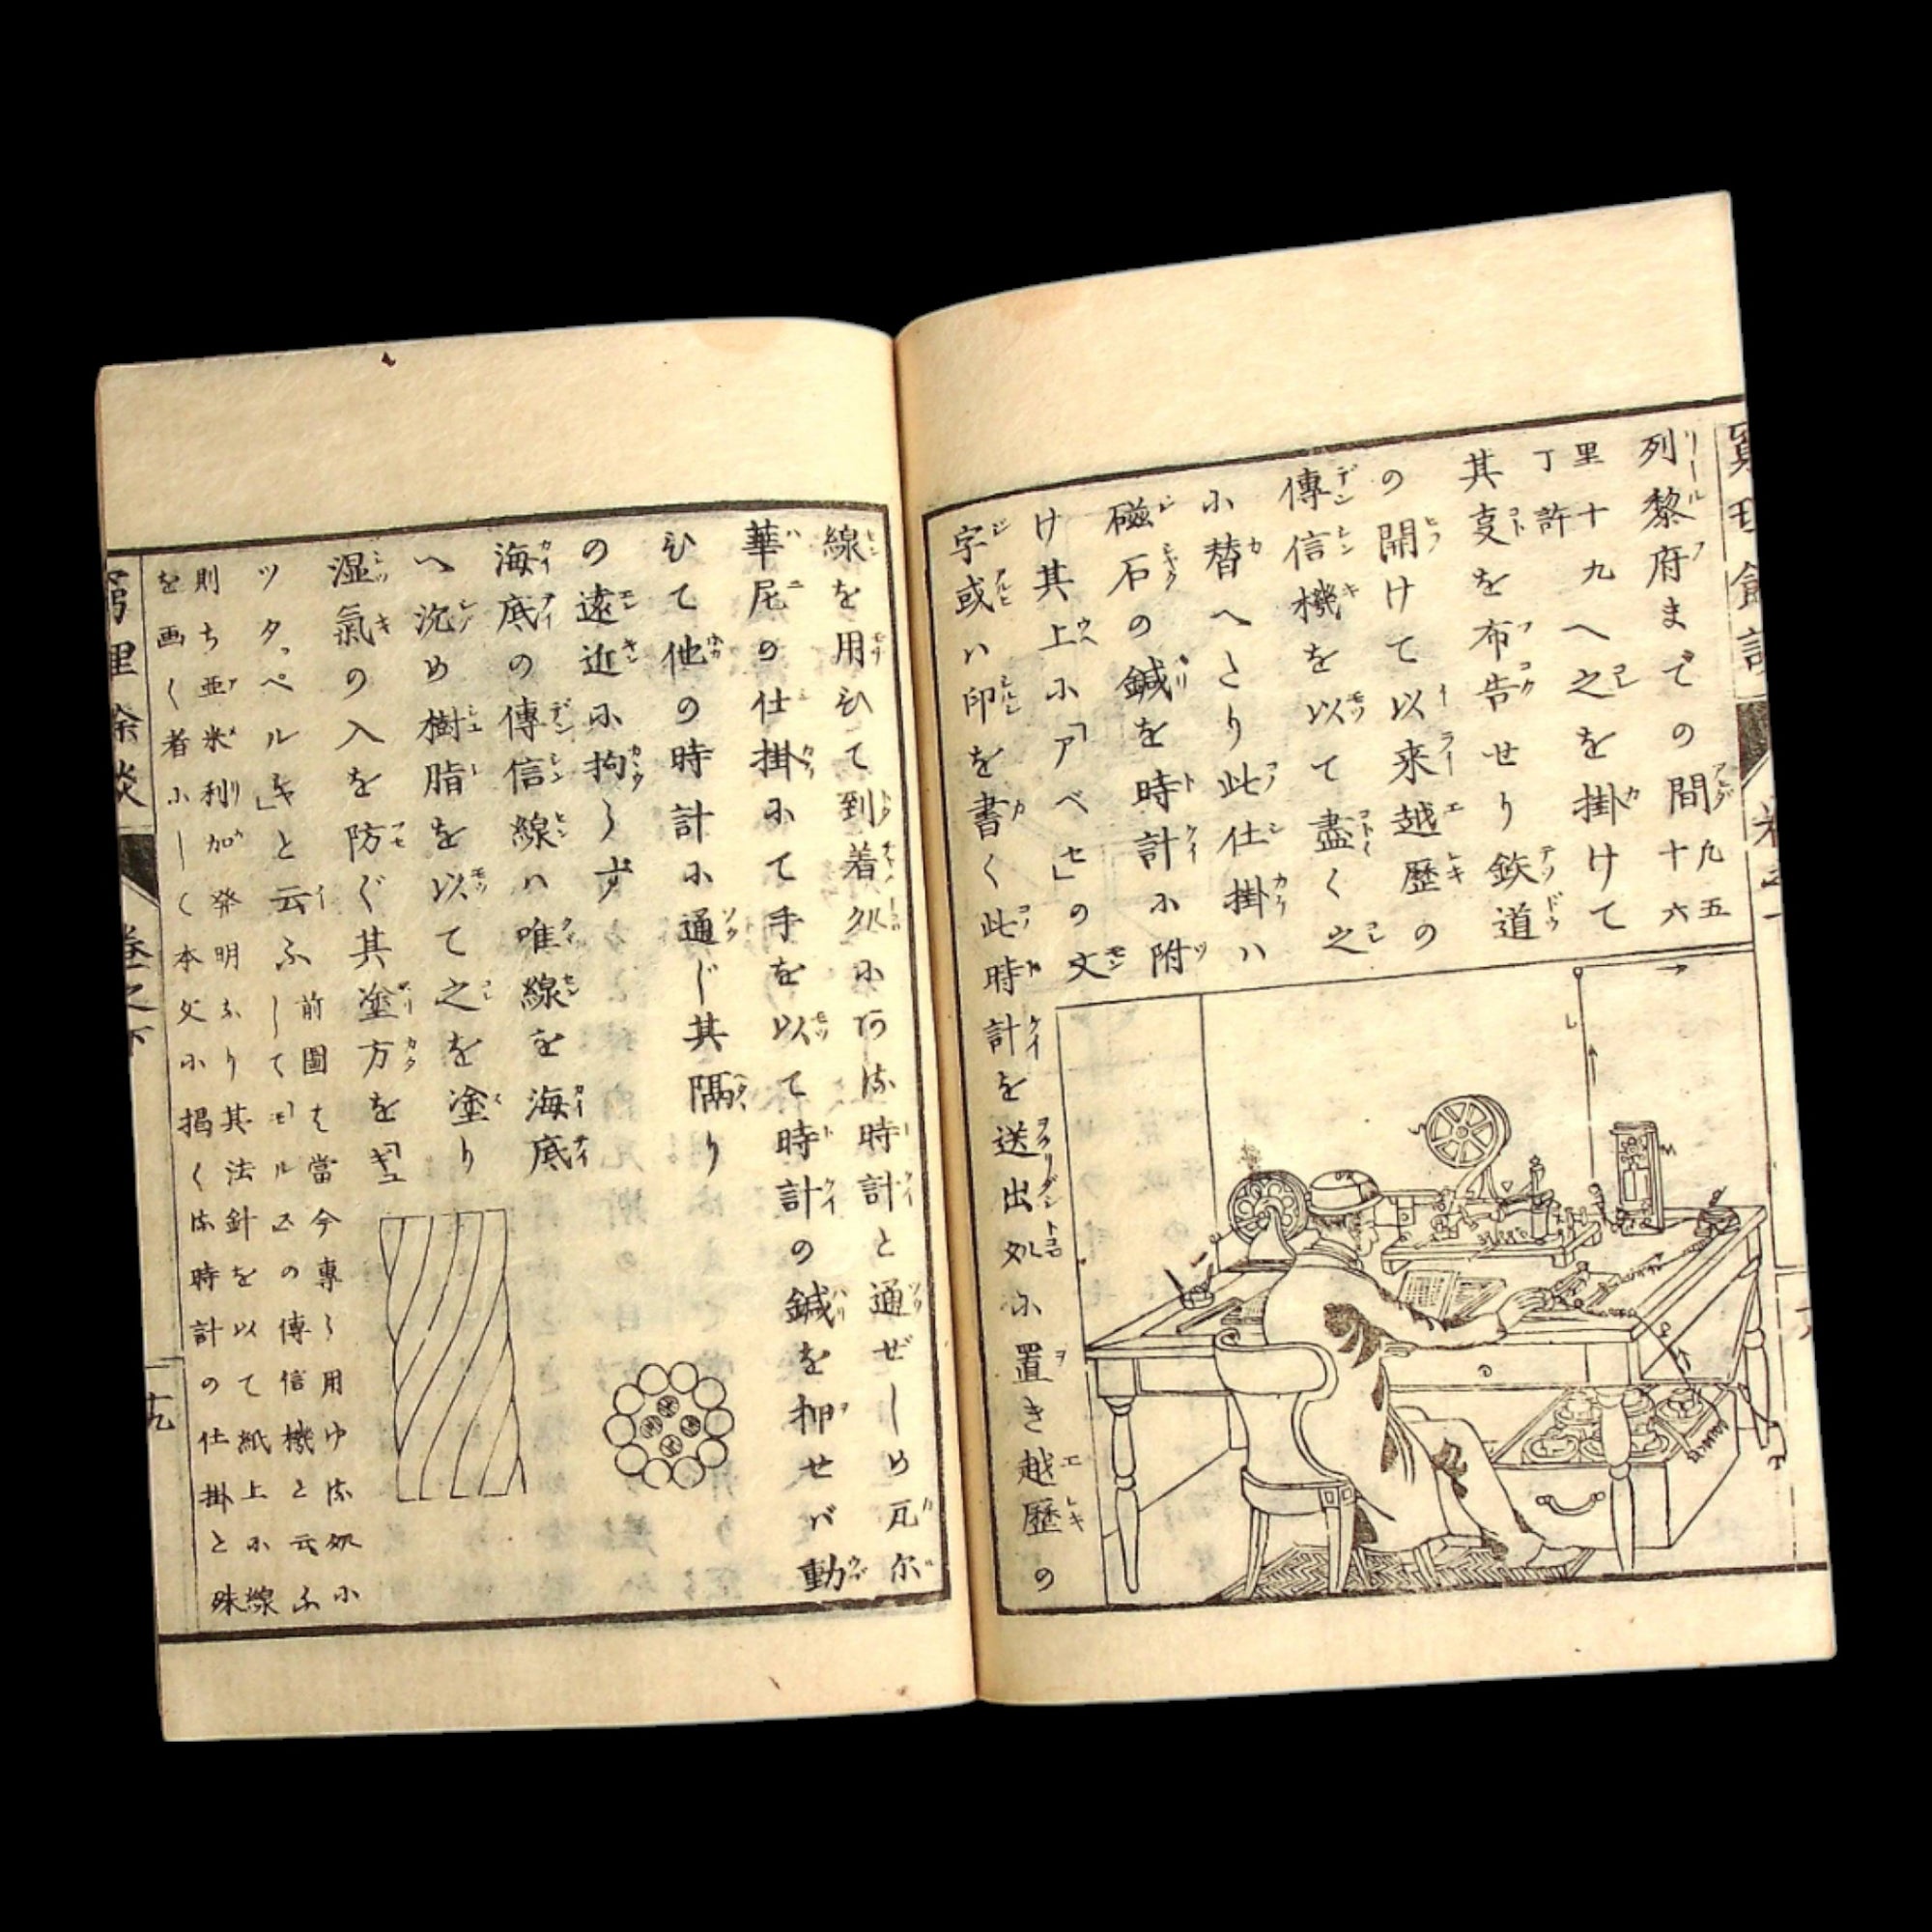 列黎府までの間九十五六
里十九へ之を掛けて
丁許
其支を布告せり鉄道
の開けて以来越歴の
傳信機を以て盡く之
小替へたり此仕掛ハ
磁石の鍼を時計小附
け其上小「アベセ」の文
字或ハ印を書く此時計を送出処小置き越歴の
線を用ひて到着処小ある時計と通ぜしめ瓦尓
華尼の仕掛小て手を以て時計の鍼を押せバ動
ひて他の時計小通じ其隔り
の遠近小拘らず
海底の傳信線ハ唯線を海底
へ沈め樹脂を以て之を塗り
湿氣の入を防ぐ其塗方を「ギュ
ッタッペルキ」と云ふ
前圖は當今專ら用ゆる処小
して「モルス」の傳信機と云ふ
則ち亜米利加発明なり其法針を以て紙上小線
を画く者小して本文小掲くる時計の仕掛と殊
窮理餘談
巻之下
十九